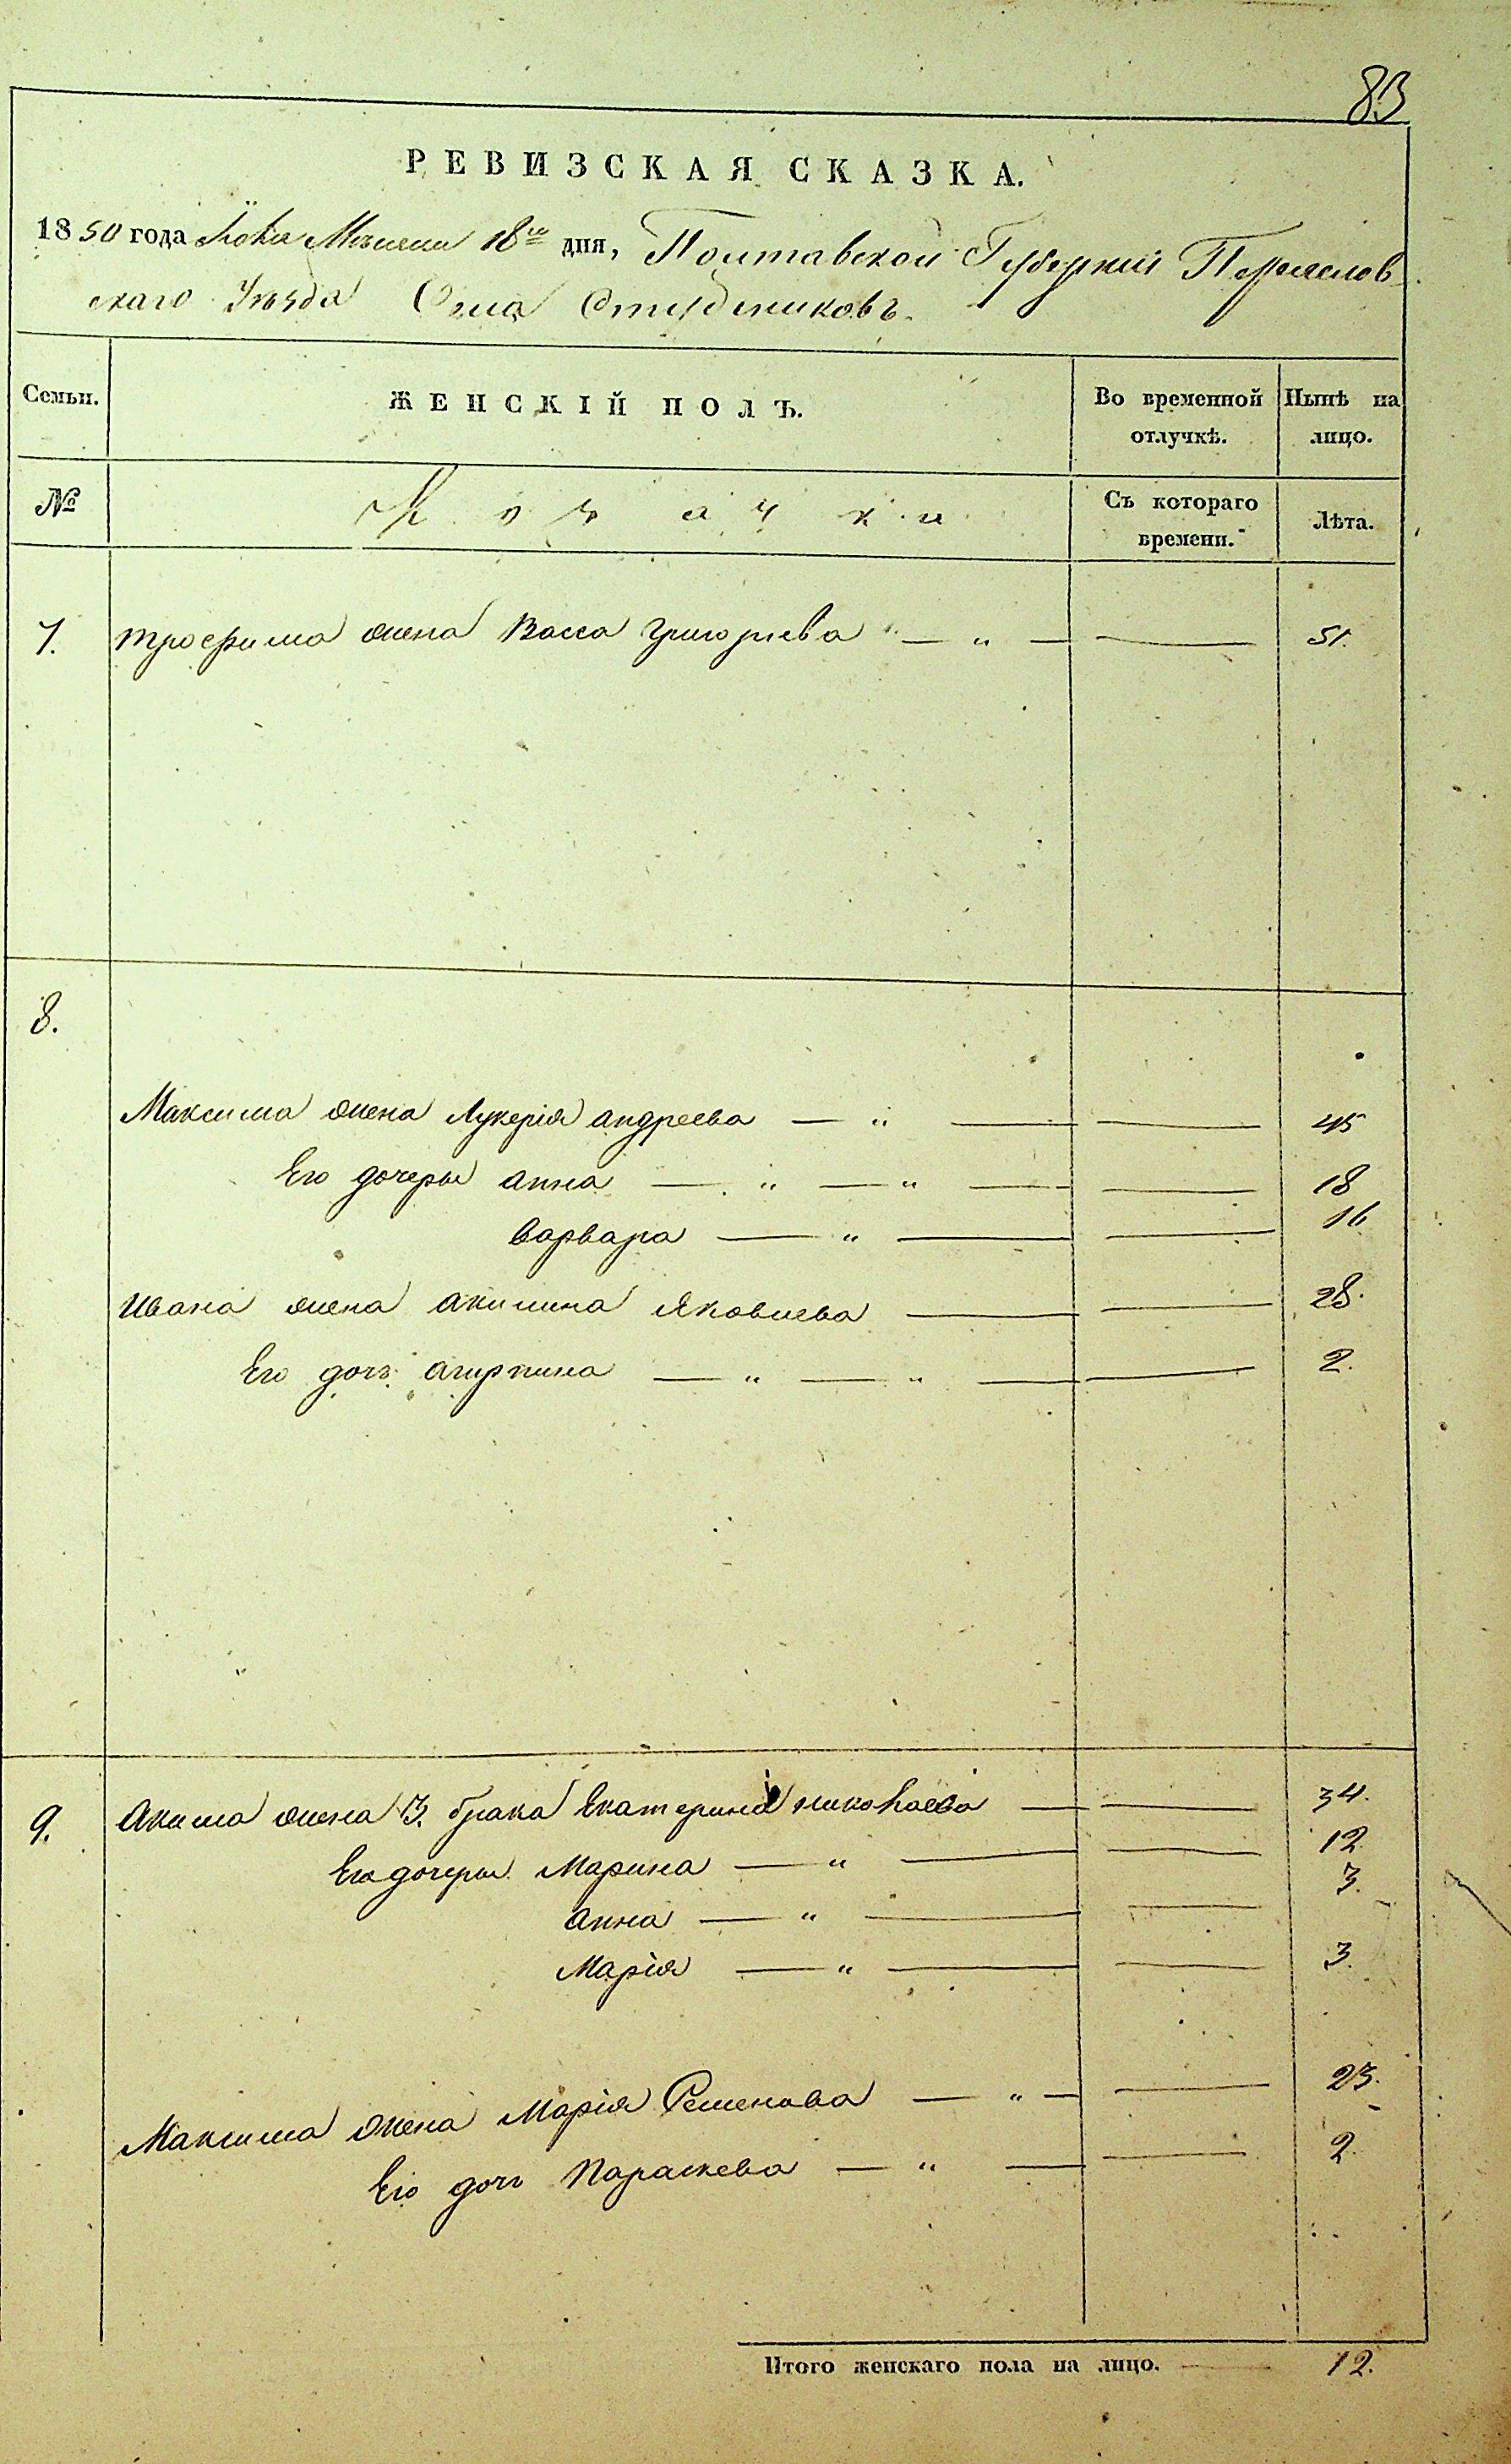 83
РЕВИЗСКАЯ СКАЗКА.
1850 года Іюня Месяца 18го дня, Полтавской Губерніи Переяслов
скаго Уѣзда Села Студениковъ.
Семьи. ЖЕНСКІЙ ПОЛЪ. Во временной отлучкѣ. Нынѣ на лицо.
№ Козачки Съ котораго времени. Лѣта.
7. трофима жена Васса григорьева — „ — — 51.
8.
Максима жена Лукерія андреева — „ — — 45
Его дочеры анна — „ — „ — — 18
варвара — „ — — 16
Ивана жена акилина Яковлева — — 28.
Его дочь агирпина — „ — „ — — 2.
9. Акима жена 3. брака Екатерина николаева — — 34.
Его дочеры Марина — „ — — 12.
анна — „ — — 3.
Марія — „ — — 3.
Максима жена Марія Семенова — „ — — 23.
Его дочь Параскева — „ — — 2.
Итого женскаго пола на лицо. — 12.